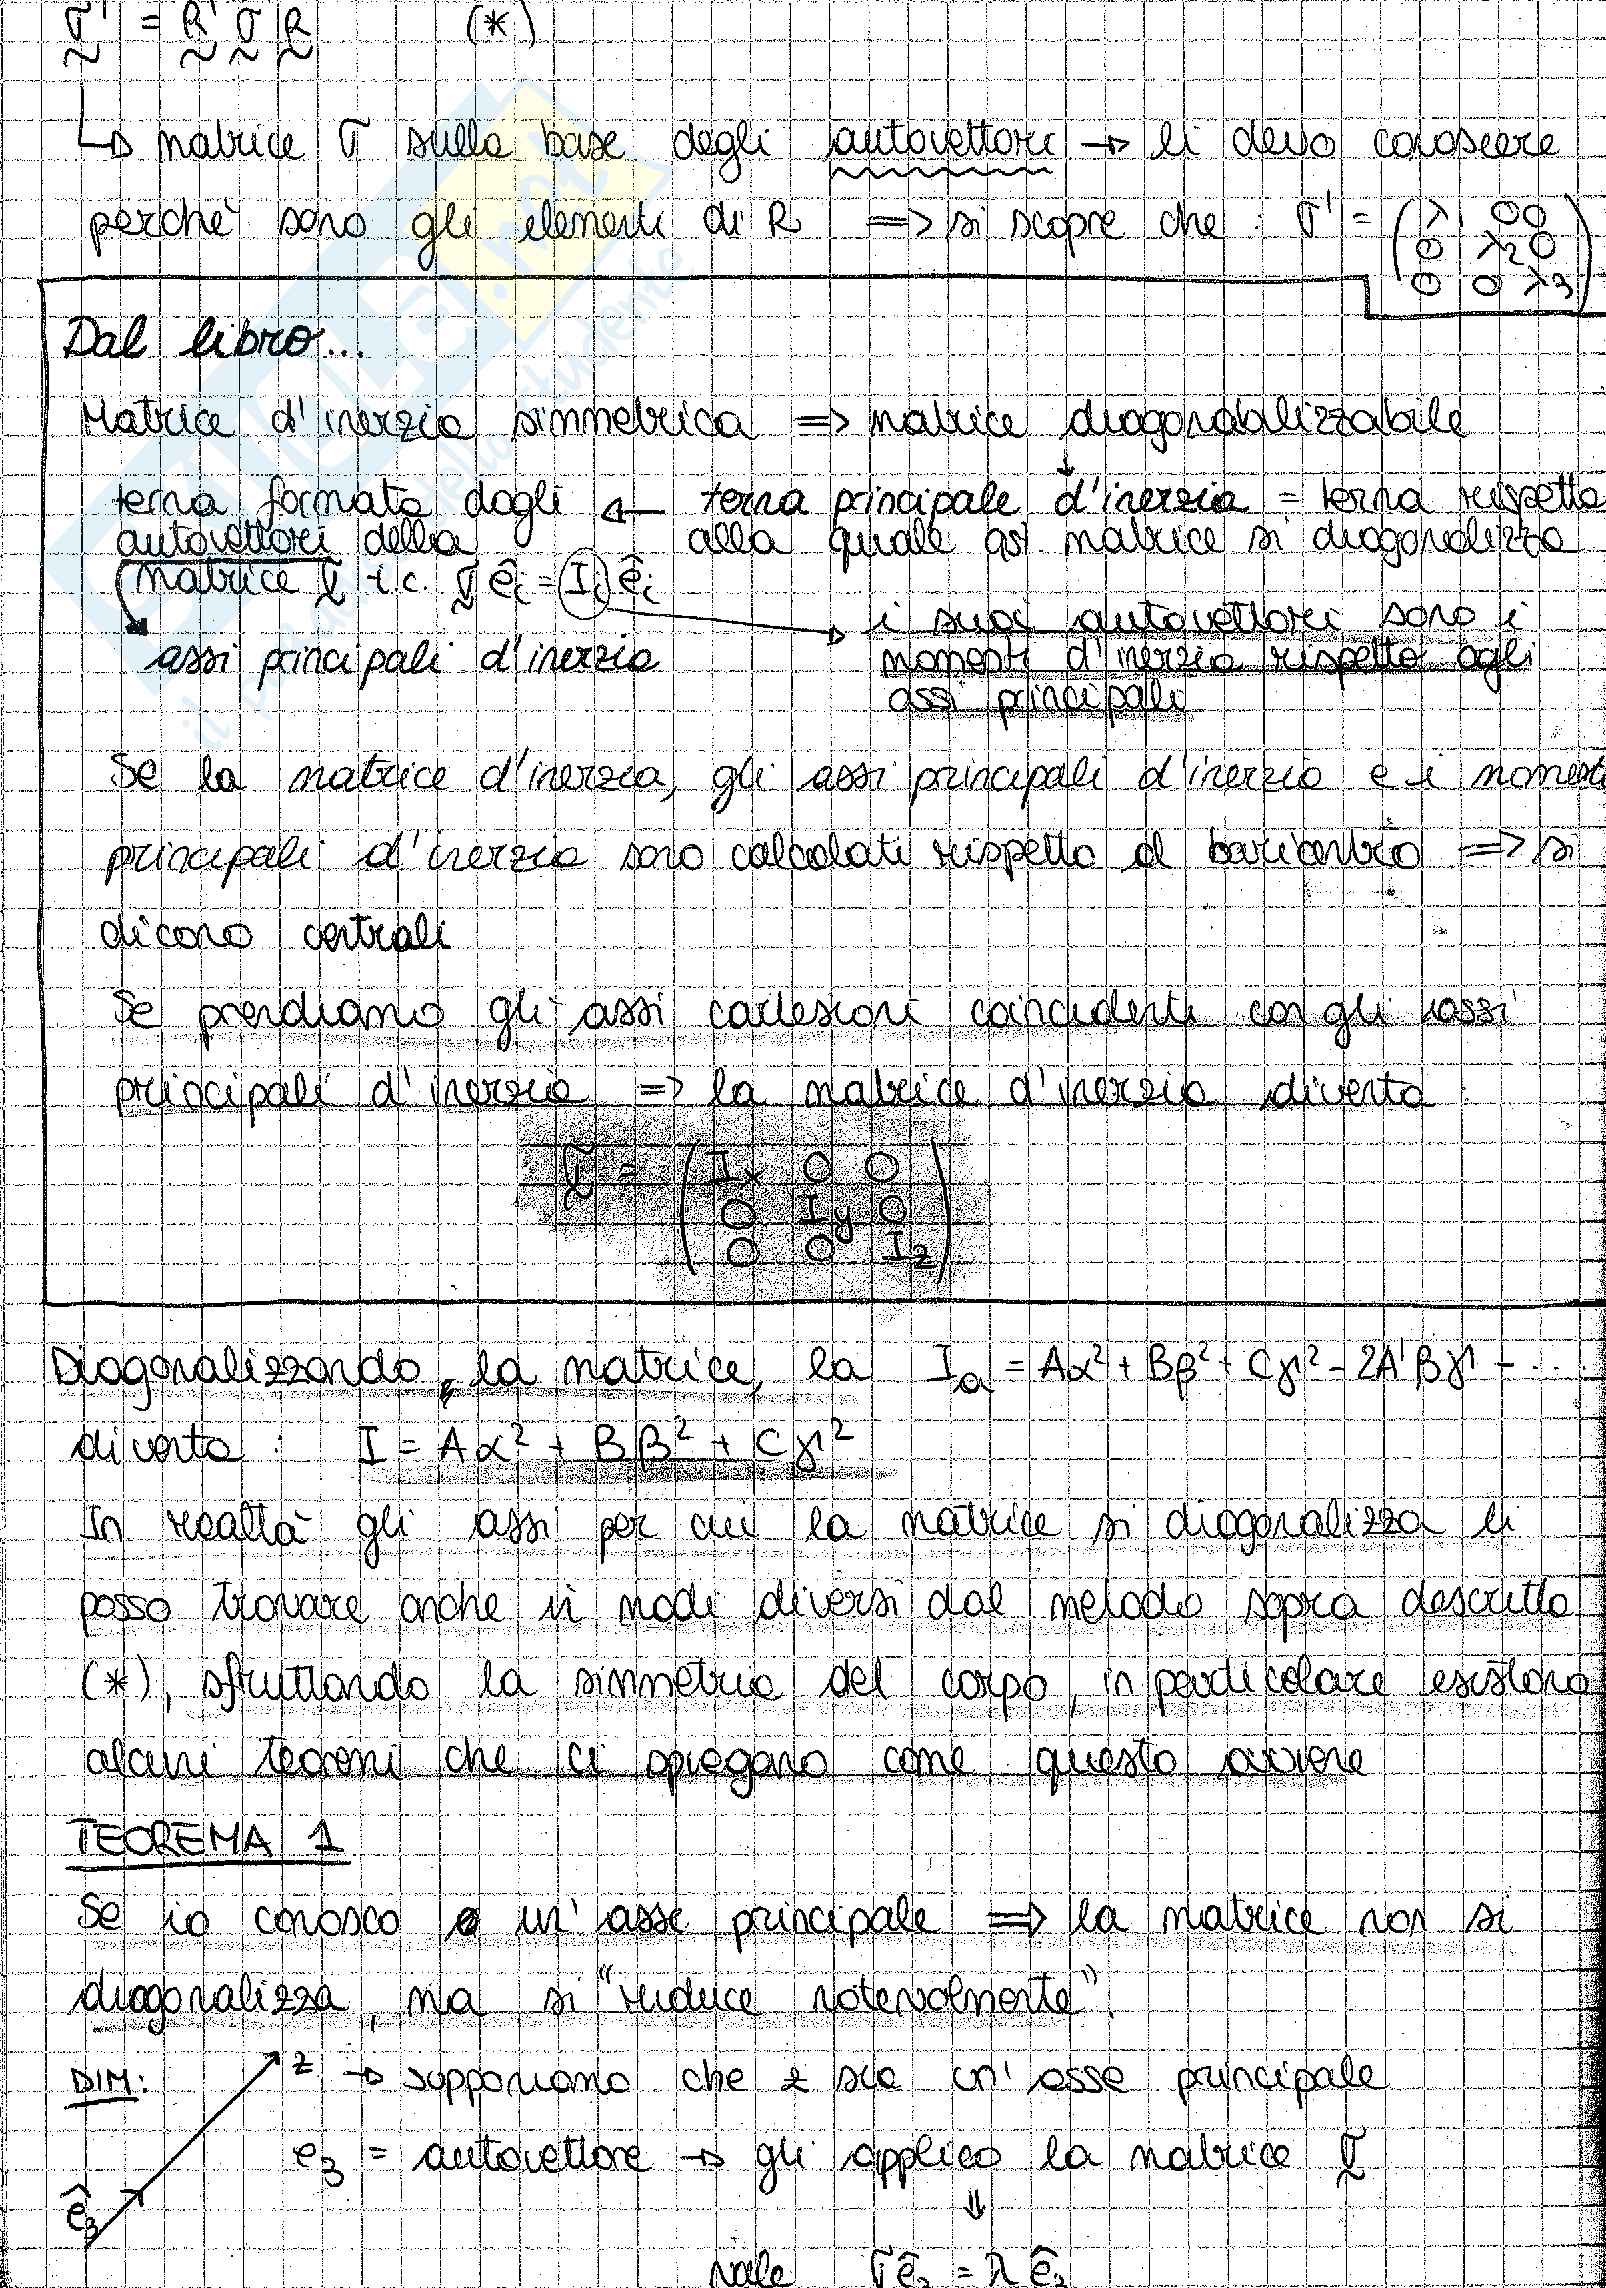 σ' = R' σ R (*)
↳ matrice σ sulla base degli autovettori → li devo conoscere
perchè sono gli elementi di R => si scopre che : σ' = (λ1 0 0
0 λ2 0
0 0 λ3)
Dal libro...
Matrice d'inerzia simmetrica => matrice diagonabalizzabile
terna formata dagli ← terna principale d'inerzia = terna rispetto
autovettori della alla quale qst matrice si diagonalizza
matrice σ t.c. σ êi = Ii êi
i suoi autovettori sono i
assi principali d'inerzia momenti d'inerzia rispetto agli
assi principali
Se la matrice d'inerzia, gli assi principali d'inerzia e i momenti
principali d'inerzia sono calcolati rispetto al baricentro => si
dicono centrali
Se prendiamo gli assi cartesiani coincidenti con gli assi
principali d'inerzia => la matrice d'inerzia diventa :
σ = (Ix 0 0
0 Iy 0
0 0 Iz)
Diagonalizzando la matrice, la Ia = Aα² + Bβ² + Cγ² - 2A'βγ - ...
diventa : I = Aα² + Bβ² + Cγ²
In realtà gli assi per cui la matrice si diagonalizza li
posso trovare anche in modi diversi dal metodo sopra descritto
(*), sfruttando la simmetria del corpo, in particolare esistono
alcuni teoremi che ci spiegano come questo avviene
TEOREMA 1
Se io conosco un' asse principale => la matrice non si
diagonalizza, ma si "riduce notevolmente".
DIM: z → supponiamo che z sia un' asse principale
e3 = autovettore → gli applico la matrice σ
ê3 ⇓
vale σ ê3 = λ ê3